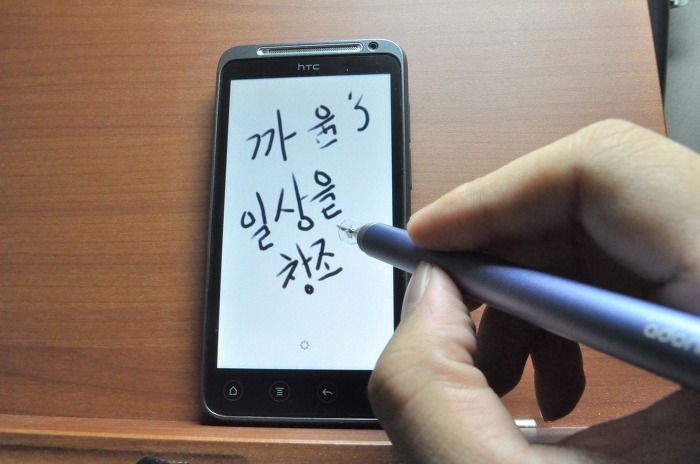 hTC
까윤's
일상을
창조